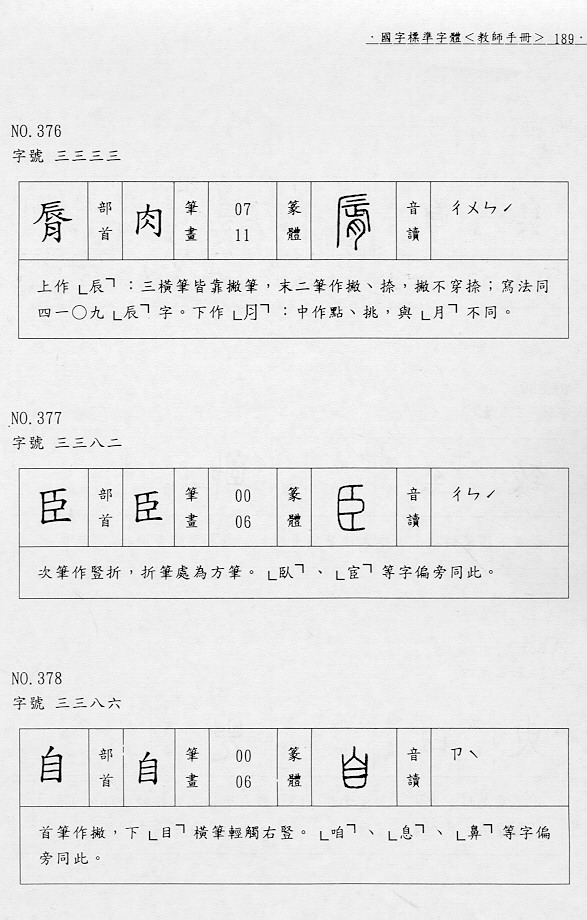 ·國字標準字體<教師手冊> 189·
NO.376
字號 三三三三
脣 部首 肉 筆畫 07 11 篆體 脣 音讀 ㄔㄨㄣˊ
上作「辰」：三橫筆皆靠撇筆，末二筆作撇、捺，撇不穿捺；寫法同
四一〇九「辰」字。下作「⺼」：中作點、挑，與「月」不同。
NO.377
字號 三三八二
臣 部首 臣 筆畫 00 06 篆體 臣 音讀 ㄔㄣˊ
次筆作豎折，折筆處為方筆。「臥」、「宦」等字偏旁同此。
NO.378
字號 三三八六
自 部首 自 筆畫 00 06 篆體 自 音讀 ㄗˋ
首筆作撇，下「目」橫筆輕觸右豎。「咱」、「息」、「鼻」等字偏
旁同此。